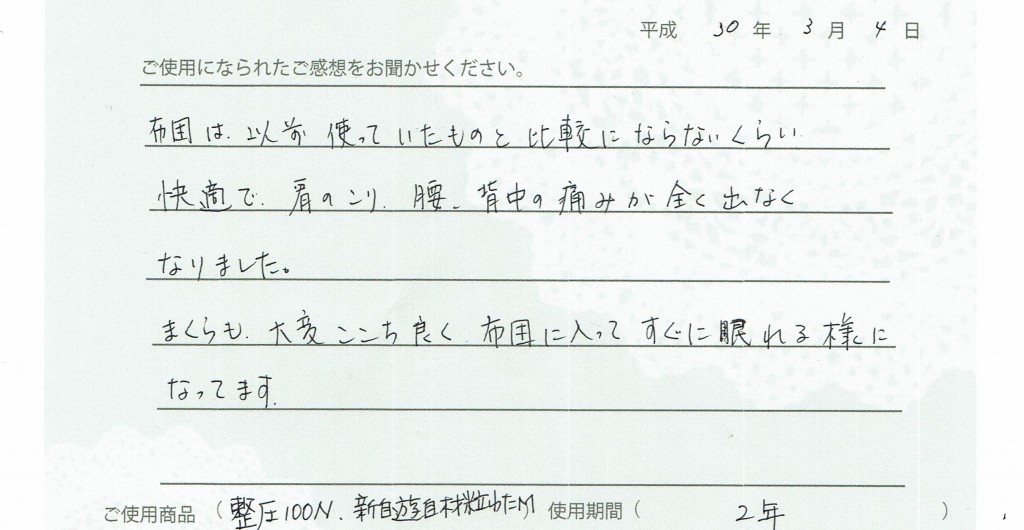 平成 30 年 3 月 4 日
ご使用になられたご感想をお聞かせください。
布団は、以前 使っていたものと 比較に ならないくらい
快適で、肩のこり、腰、背中の痛みが 全く出なく
なりました。
まくらも、大変 ここち良く、布団に入って すぐに眠れる様に
なってます。
ご使用商品 ( 整圧100N、新自遊自材粒わたM 使用期間 ( 2年 )